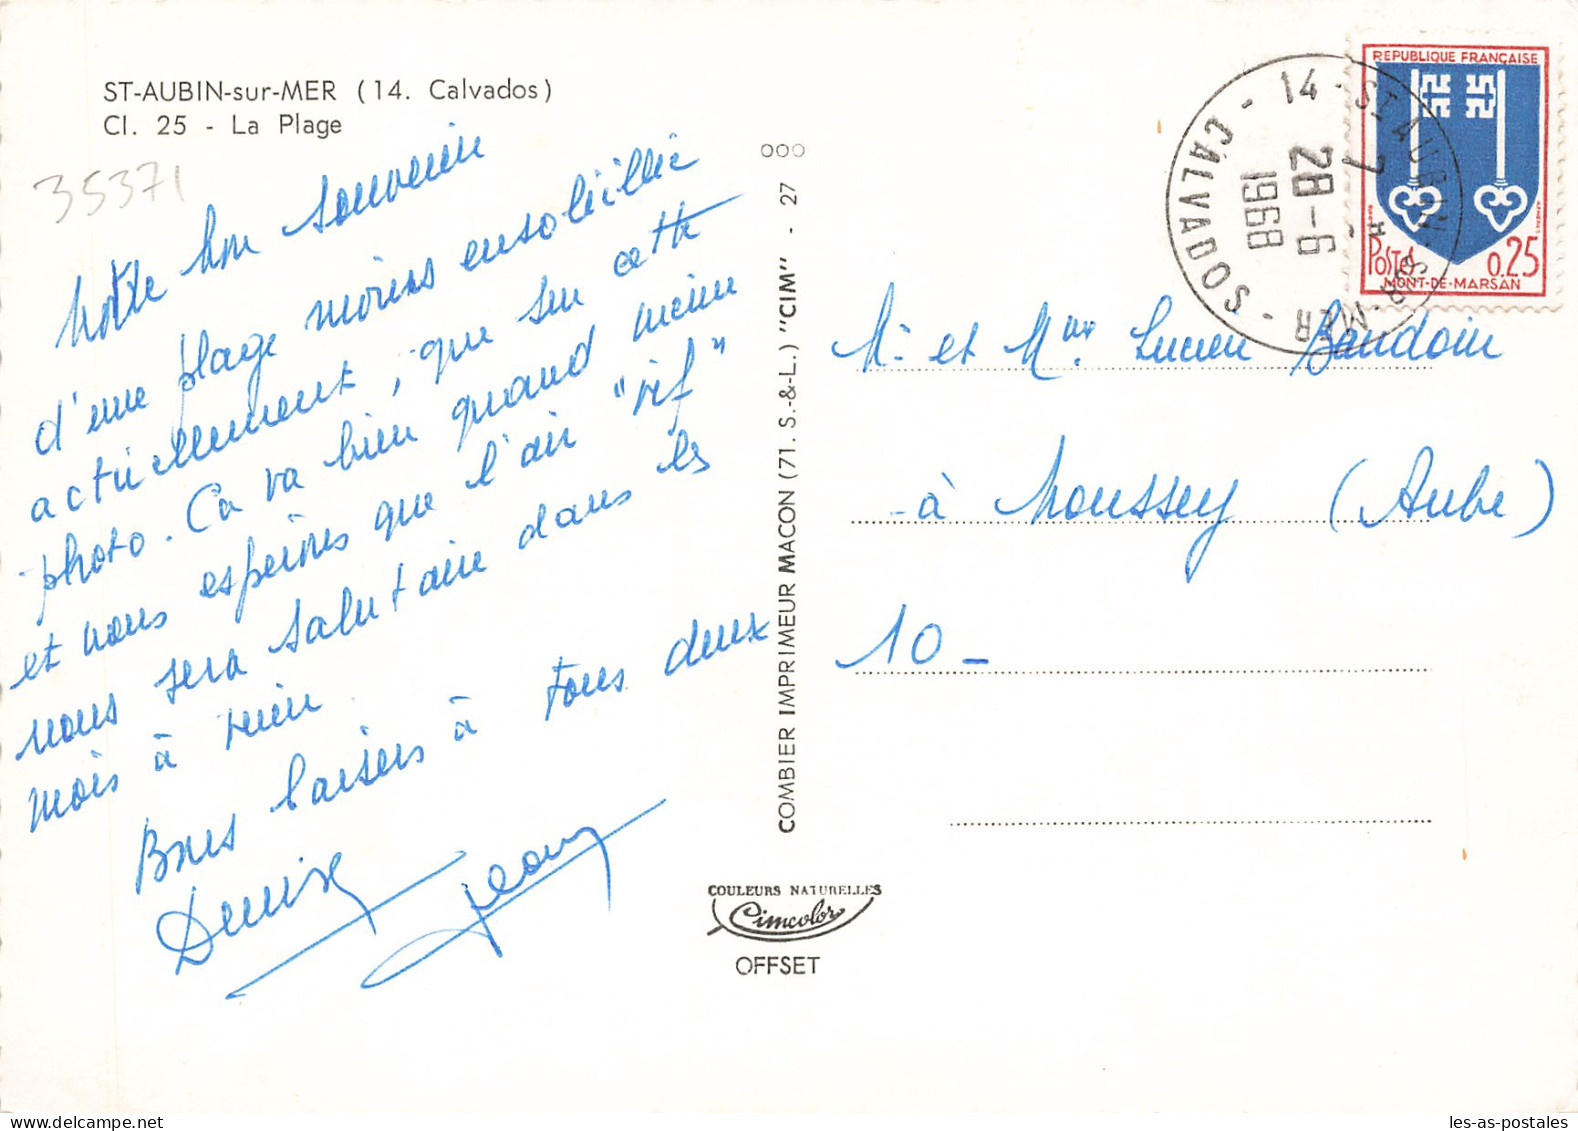 ST-AUBIN-sur-MER (14. Calvados)
Cl. 25 - La Plage
35371
Notre bon souvenir
d'une plage moins ensoleillée
actuellement, que sur cette
photo. Ca va bien quand même
et nous espérons que l'air "vif"
nous sera salutaire dans les
mois à venir.
Bons baisers à tous deux
Denise Jean
OOO
COMBIER IMPRIMEUR MACON (71. S.-&-L.) "CIM" - 27
COULEURS NATURELLES
Cimcolor
OFFSET
14 - ST-AUBIN-SUR-MER - CALVADOS -
7 H
28-6
1968
REPUBLIQUE FRANÇAISE
POSTES 0.25
MONT-DE-MARSAN
Mr et Mme Lucien Baudoin
-à Moussey (Aube)
10-
les-as-postales